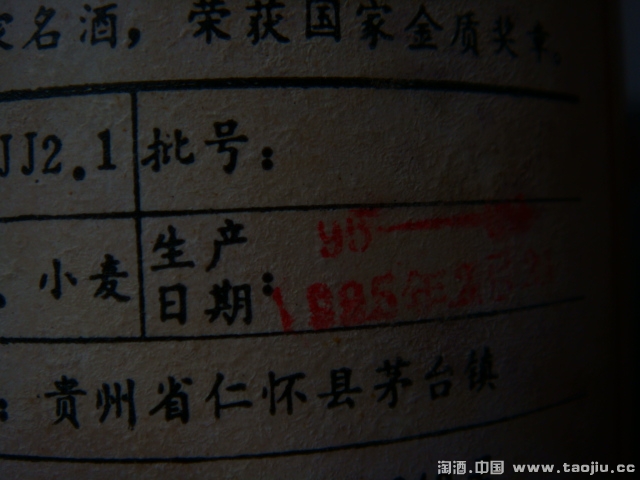 名酒，荣获国家金质奖章。
JJ2.1 批号：
95—
小麦 生产
日期：1995年2月
：贵州省仁怀县茅台镇
淘酒.中国 www.taojiu.cc